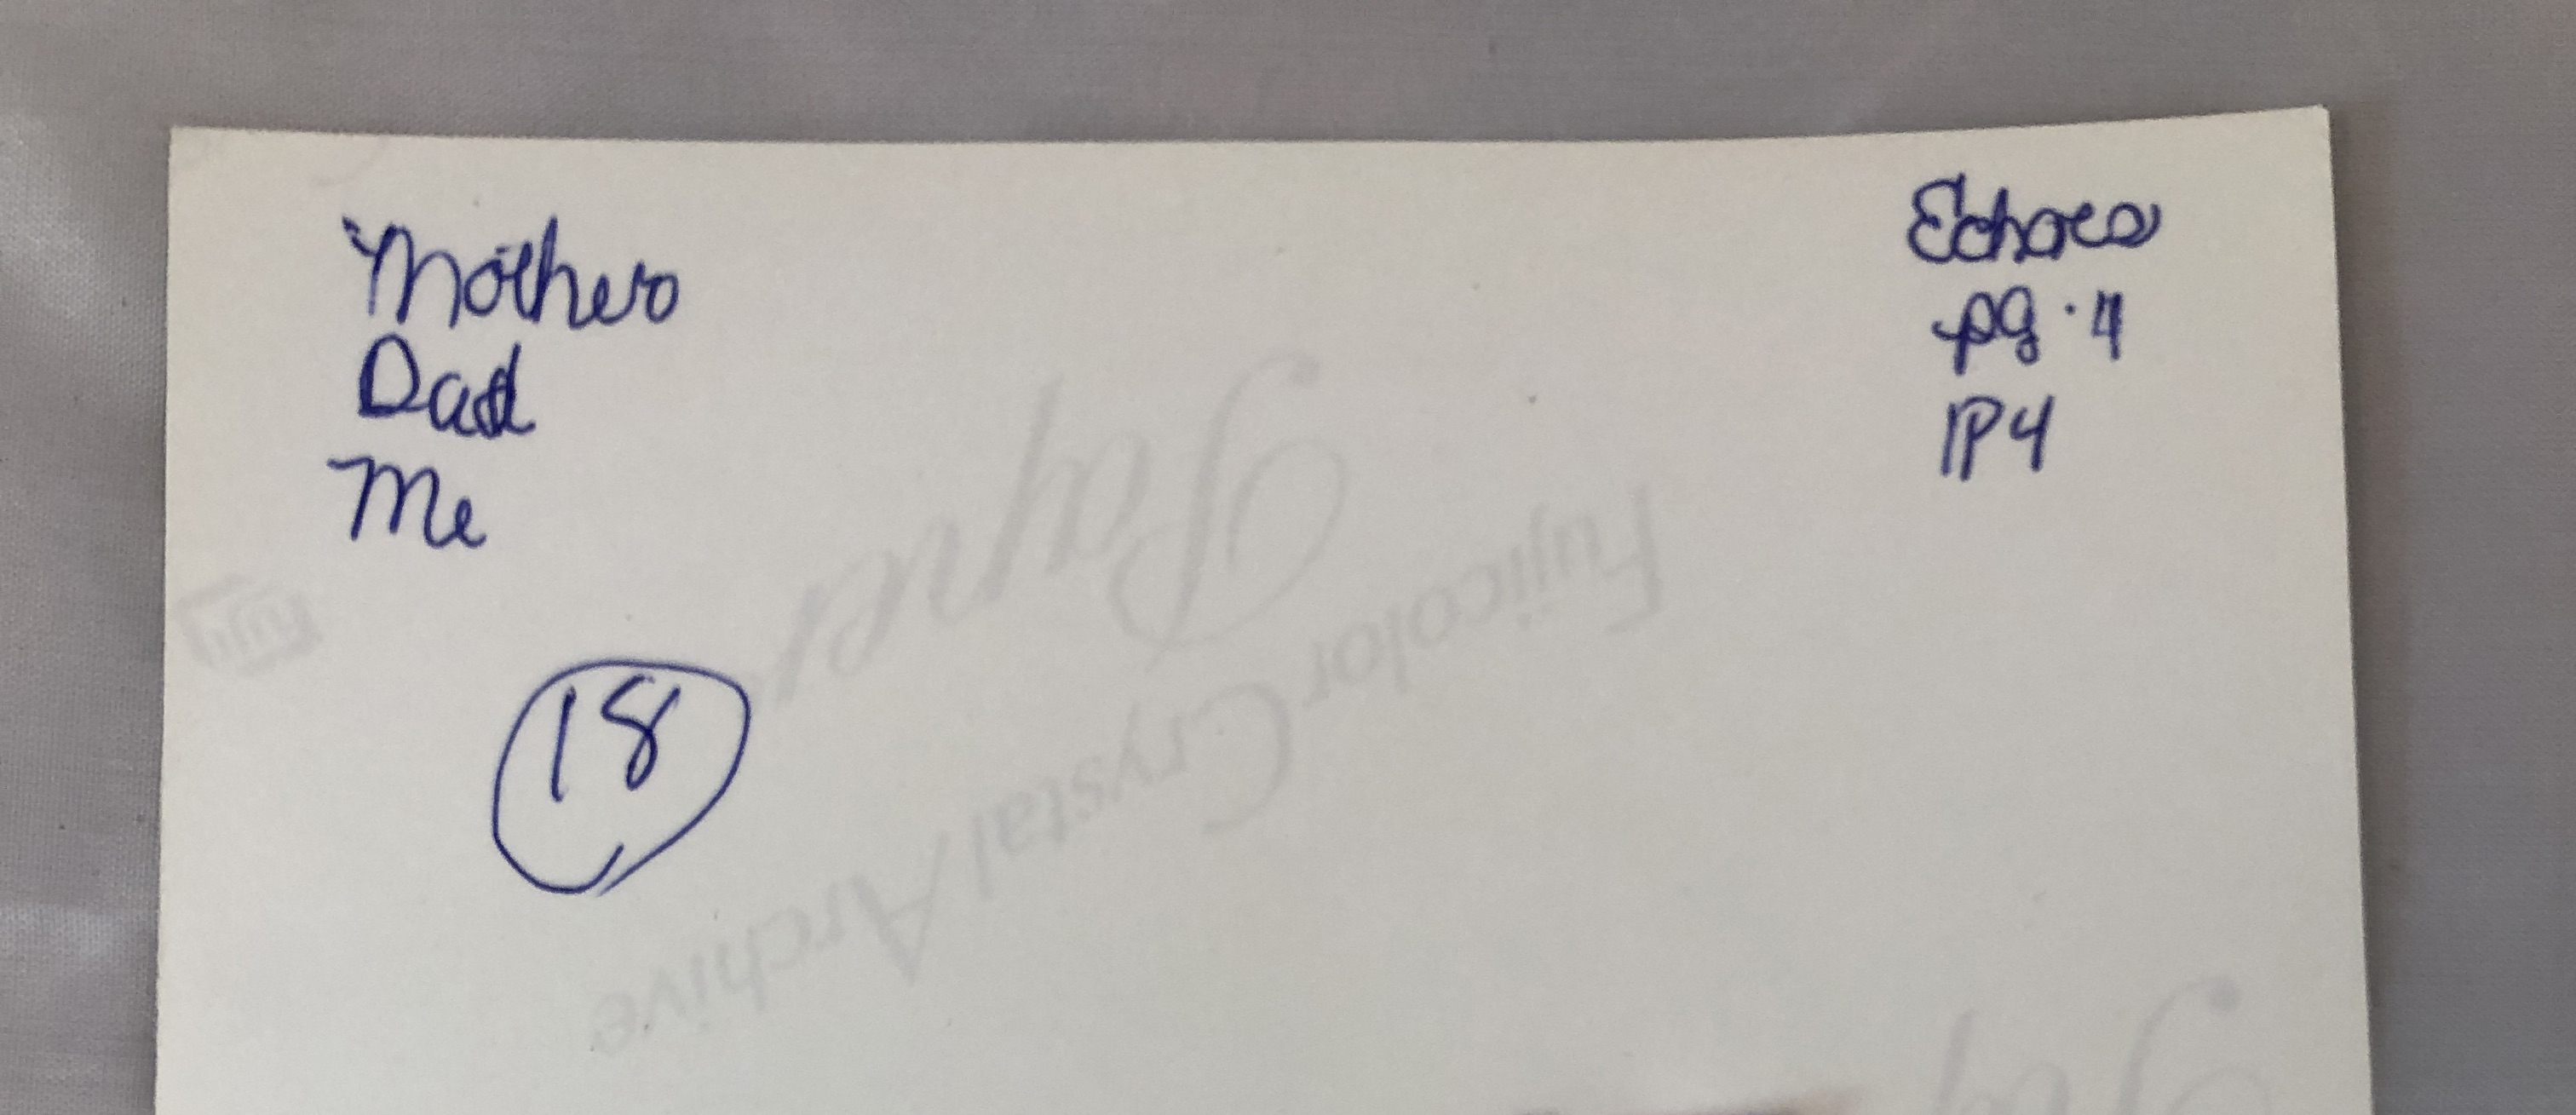 Mother
Dad
Me
18
Echoes
pg. 4
1P4
Fujicolor Crystal Archive
Paper